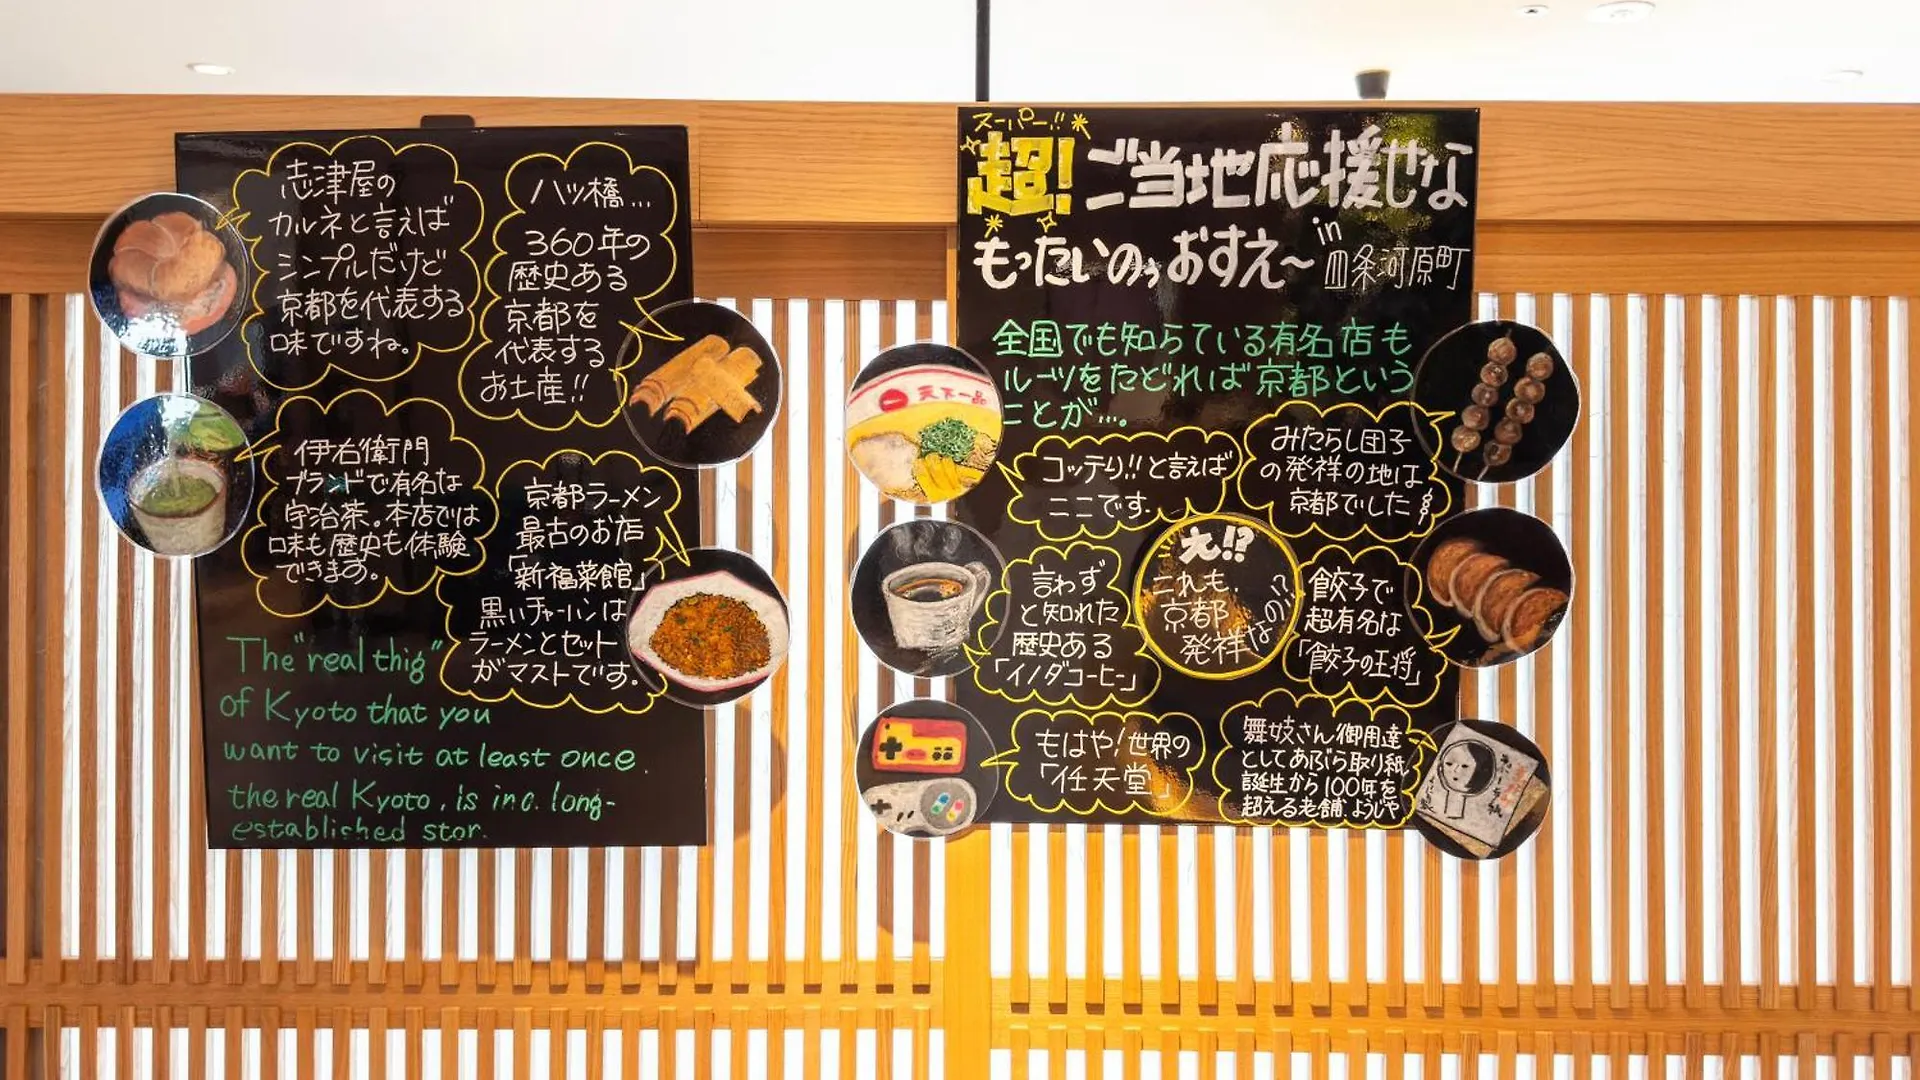 志津屋の
カルネと言えば
シンプルだけど
京都を代表する
味ですね。
八ッ橋...
360年の
歴史ある
京都を
代表する
お土産!!
伊右衛門
ブランドで有名な
宇治茶。本店では
味も歴史も体験
できます。
京都ラーメン
最古のお店
「新福菜館」
黒いチャーハンは
ラーメンとセット
がマストです。
The "real thig"
of Kyoto that you
want to visit at least once.
the real Kyoto, is in a long-
established stor.
スーパー!!
超! ご当地応援せな
もったいのぅおすえ〜 in 四条河原町
全国でも知らている有名店も
ルーツをたどれば京都という
ことが...。
天下一品
コッテリ!!と言えば
ここです.
みたらし団子
の発祥の地は
京都でした
え!?
これも、
京都
発祥なの!?
言わず
と知れた
歴史ある
「イノダコーヒー」
餃子で
超有名な
「餃子の王将」
もはや!世界の
「任天堂」
舞妓さん御用達
としてあぶら取り紙
誕生から100年を
超える老舗.ようじや